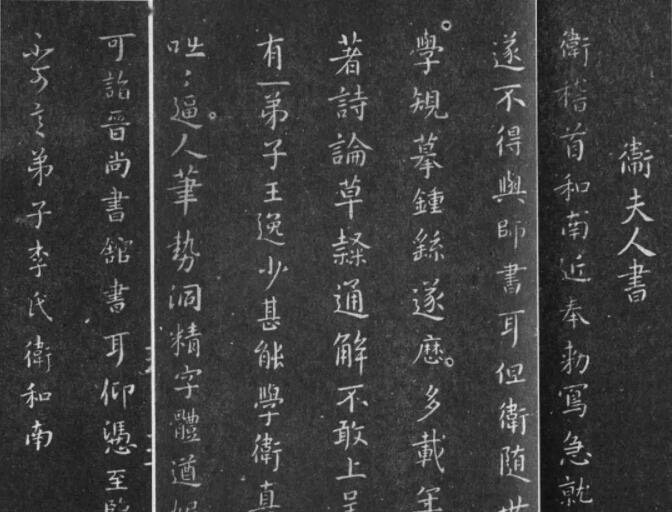 衛夫人書
衛稽首和南近奉勅寫急就
遂不得與師書耳但衛随世
學規摹鍾繇遂歷多載年
著詩論草隸通解不敢上呈
有一弟子王逸少甚能學衛真
咄〻逼人筆勢洞精字體遒媚
可詣晉尚書舘書耳仰憑至鑒
弟子李氏衛和南